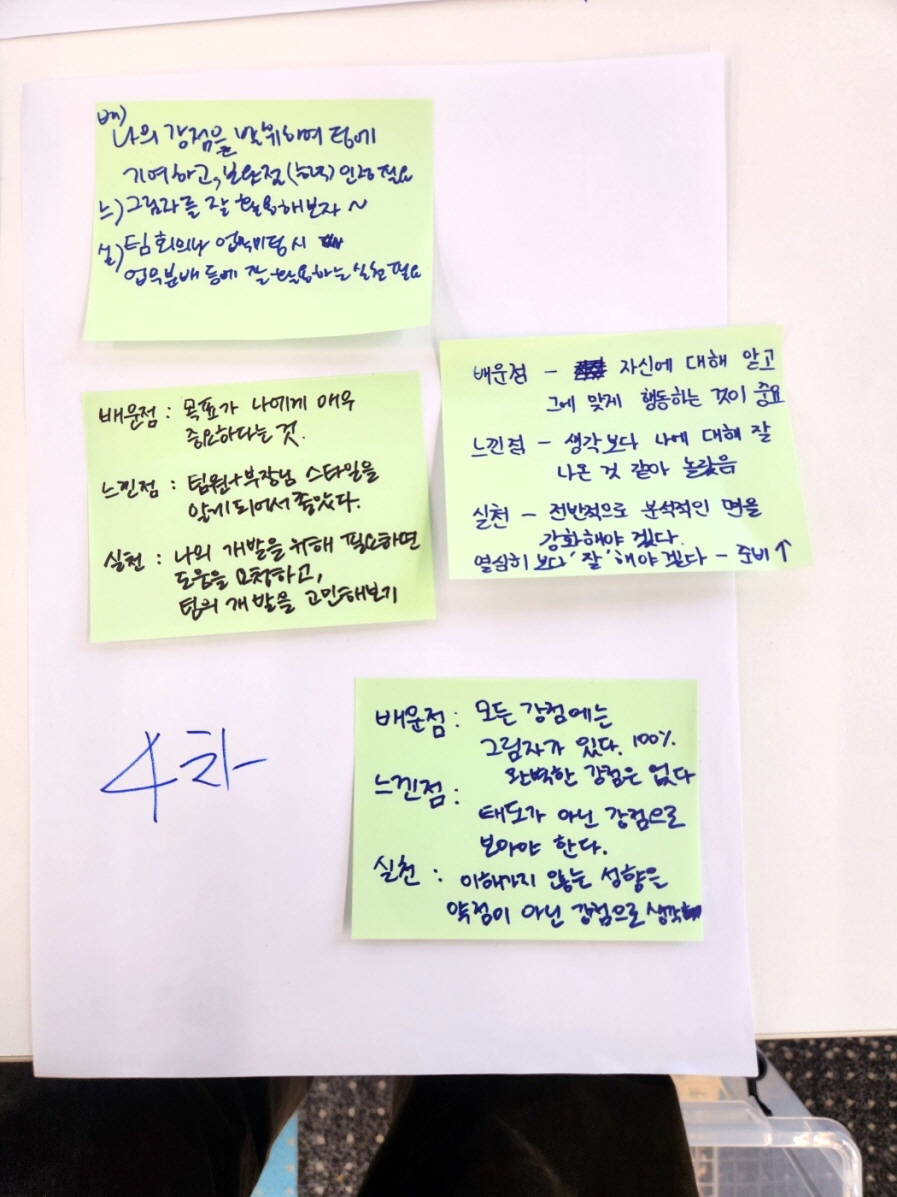 배)
나의 강점을 발휘하여 팀에
기여하고, 보완점(약점) 인정 필요
느) 그림자를 잘 활용해보자 ~
실) 팀 회의나 업무미팅시
업무분배 등에 잘 활용하는 실천 필요
배운점 : 목표가 나에게 매우
중요하다는 것.
느낀점 : 팀원+부장님 스타일을
알게되어서 좋았다.
실천 : 나의 개발을 위해 필요하면
도움을 요청하고,
팀의 개발을 고민해보기
배운점 - 자신에 대해 알고
그에 맞게 행동하는 것이 중요
느낀점 - 생각보다 나에 대해 잘
나온 것 같아 놀랐음
실천 - 전반적으로 분석적인 면을
강화해야 겠다.
열심히 보다 '잘' 해야 겠다 - 준비↑
배운점 : 모든 강점에는
그림자가 있다. 100%
완벽한 강점은 없다
느낀점 : 태도가 아닌 강점으로
보아야 한다.
실천 : 이해가지 않는 성향을
약점이 아닌 강점으로 생각해
4차